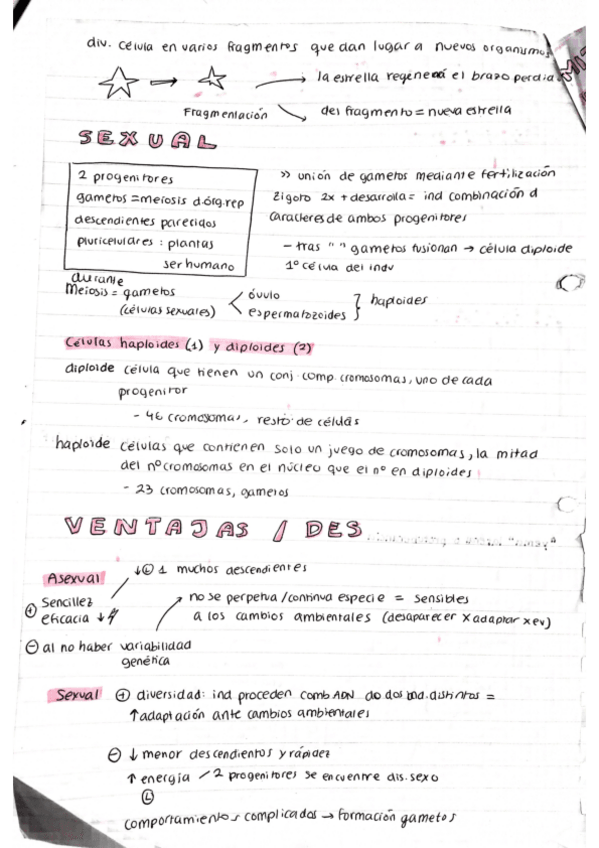 div. célula en varios fragmentos que dan lugar a nuevos organismos
la estrella regenera el brazo perdia
Fragmentación
del fragmento = nueva estrella
SEXUAL
2 progenitores
gametos = meiosis d.órg.rep
descendientes parecidos
pluricelulares : plantas
ser humano
» unión de gametos mediante fertilización
zigoto 2x + desarrolla = ind combinación d
caracteres de ambos progenitores
- tras " " gametos fusionan → célula diploide
1º célula del indv
durante
Meiosis = gametos
(células sexuales)
óvulo
espermatozoides
haploides
Células haploides (1) y diploides (2)
diploide célula que tienen un conj. comp. cromosomas, uno de cada
progenitor
- 46 cromosomas, resto de células
haploide células que contienen solo un juego de cromosomas, la mitad
del nº cromosomas en el núcleo que el nº en diploides
- 23 cromosomas, gametos
VENTAJAS / DES
Asexual
↓ 1 muchos descendientes
+ Sencillez
eficacia ↓
no se perpetua/continua especie = sensibles
a los cambios ambientales (desaparecer x adaptar x ev)
- al no haber variabilidad
genética
Sexual + diversidad: ind proceden comb ADN de dos ind. distintos =
↑ adaptación ante cambios ambientales
- ↓ menor descendientes y rápidez
↑ energía / 2 progenitores se encuentre dis. sexo
comportamientos complicados → formación gametos